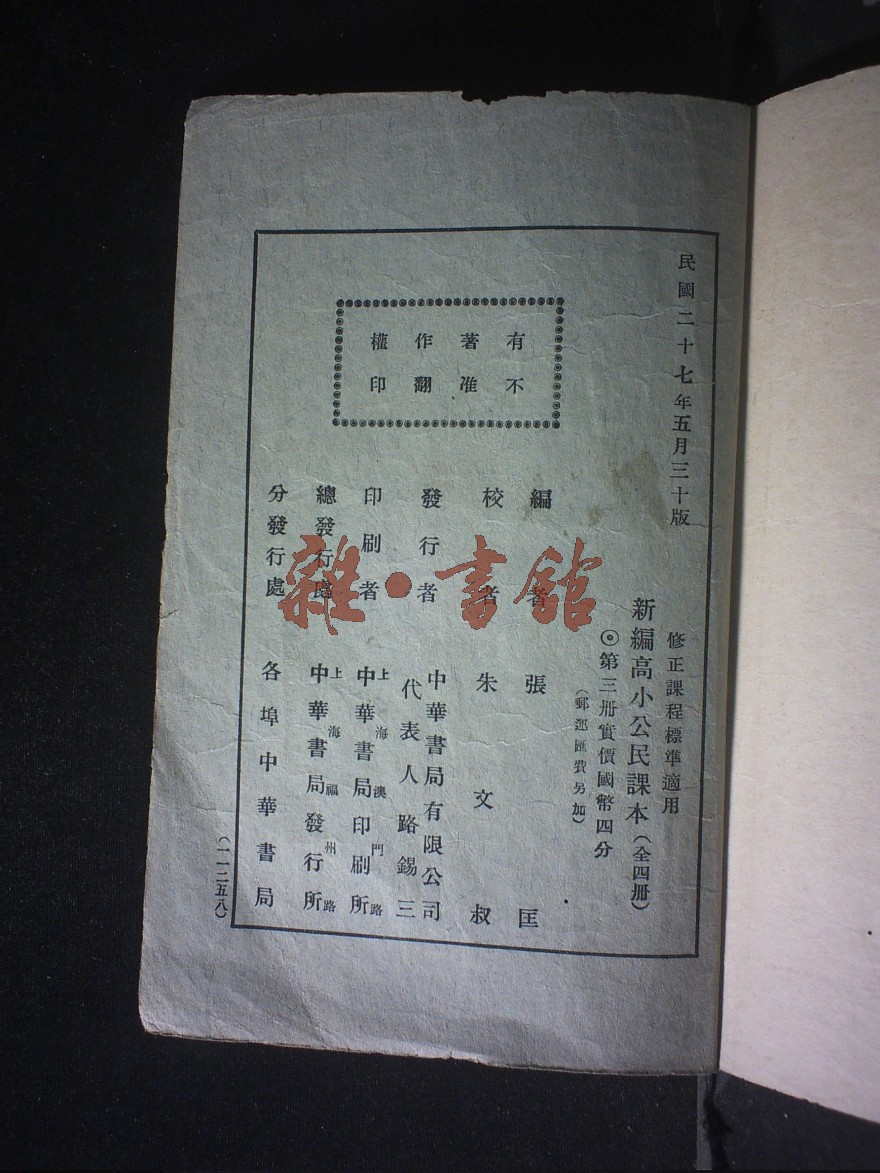 民國二十七年五月三十版
修正課程標準適用
新編高小公民課本(全四冊)
◎第三冊實價國幣四分
(郵運匯費另加)
有不
著准
作翻
權印
編者 張匡
校者 朱文叔
發行者 中華書局有限公司
代表人路錫三
印刷者 上海澳門路
中華書局印刷所
總發行處 上海福州路
中華書局發行所
分發行處 各埠中華書局
(一一二五八)
雜·書館